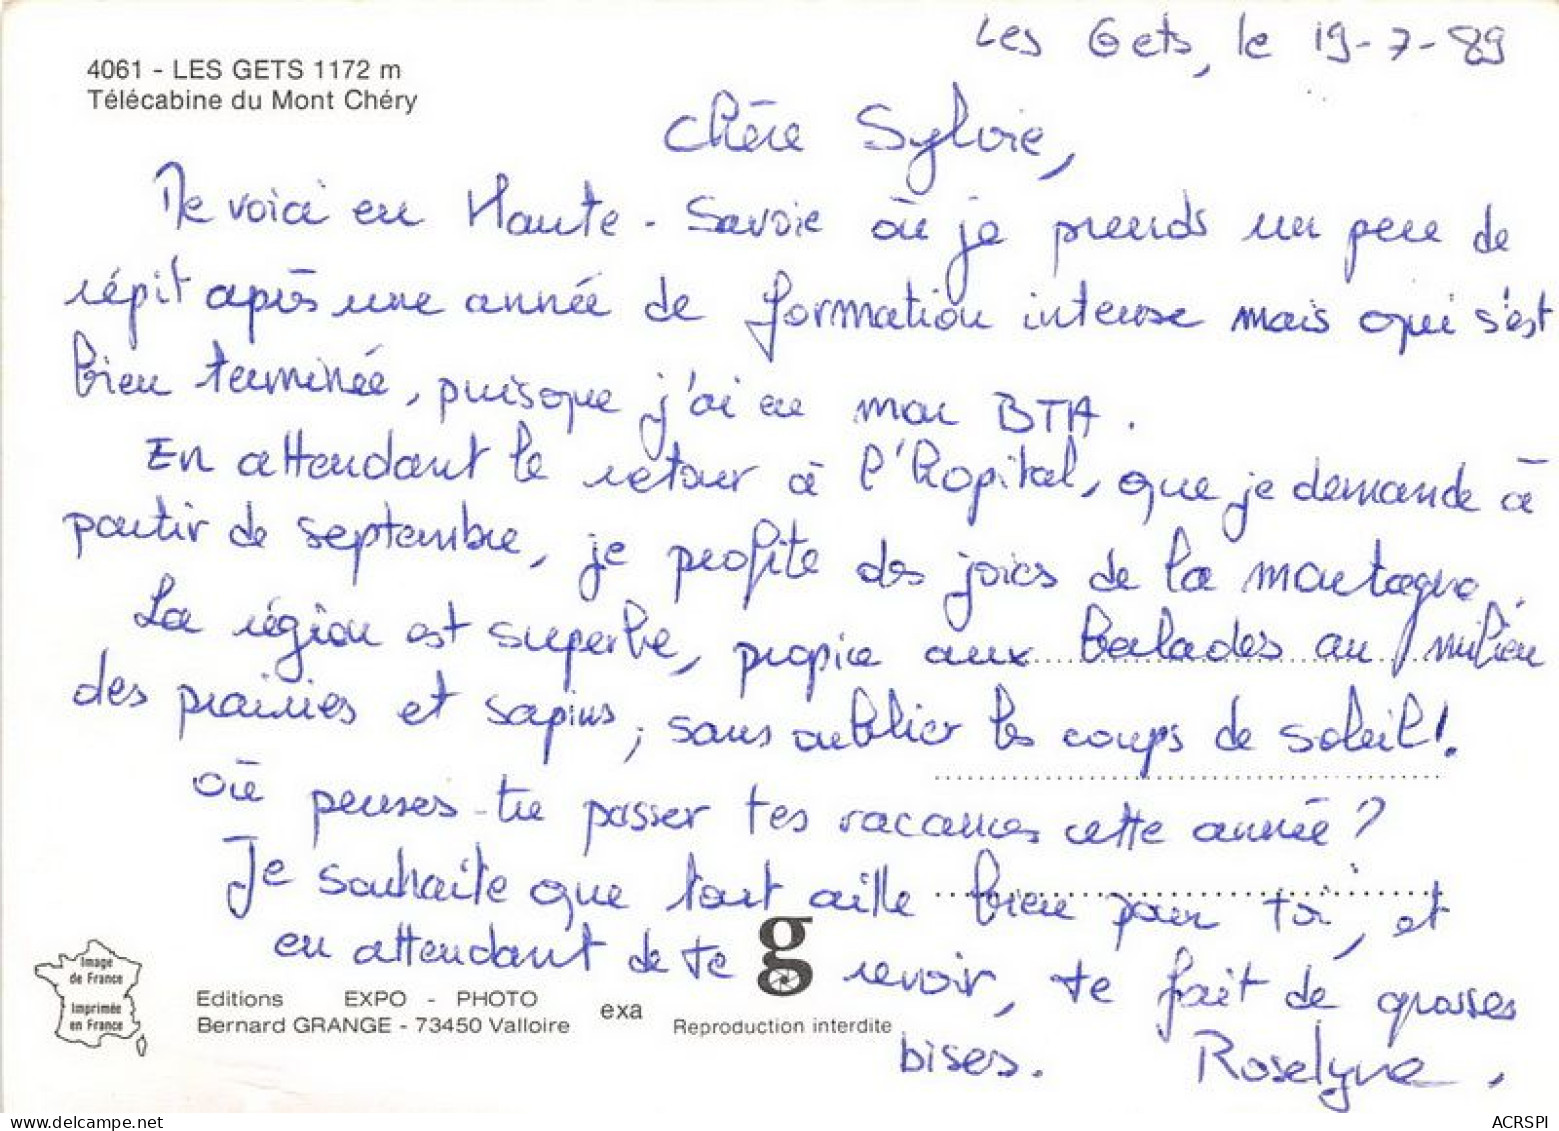 Les Gets, le 19-7-89
4061 - LES GETS 1172 m
Télécabine du Mont Chéry
Chère Sylvie,
Me voici en Haute-Savoie où je prends un peu de
répit après une année de formation intense mais qui s'est
bien terminée, puisque j'ai eu mon BTA.
En attendant le retour à l'hôpital, que je demande à
partir de septembre, je profite des joies de la montagne.
La région est superbe, propice aux balades au milieu
des prairies et sapins, sans oublier les coups de soleil!.
Où penses-tu passer tes vacances cette année?
Je souhaite que tout aille bien pour toi, et
en attendant de te revoir, te fait de grosses
bises. Roselyne.
Image
de France
Imprimée
en France
Editions EXPO - PHOTO
Bernard GRANGE - 73450 Valloire
exa
g
Reproduction interdite
delcampe.net
ACRSPI